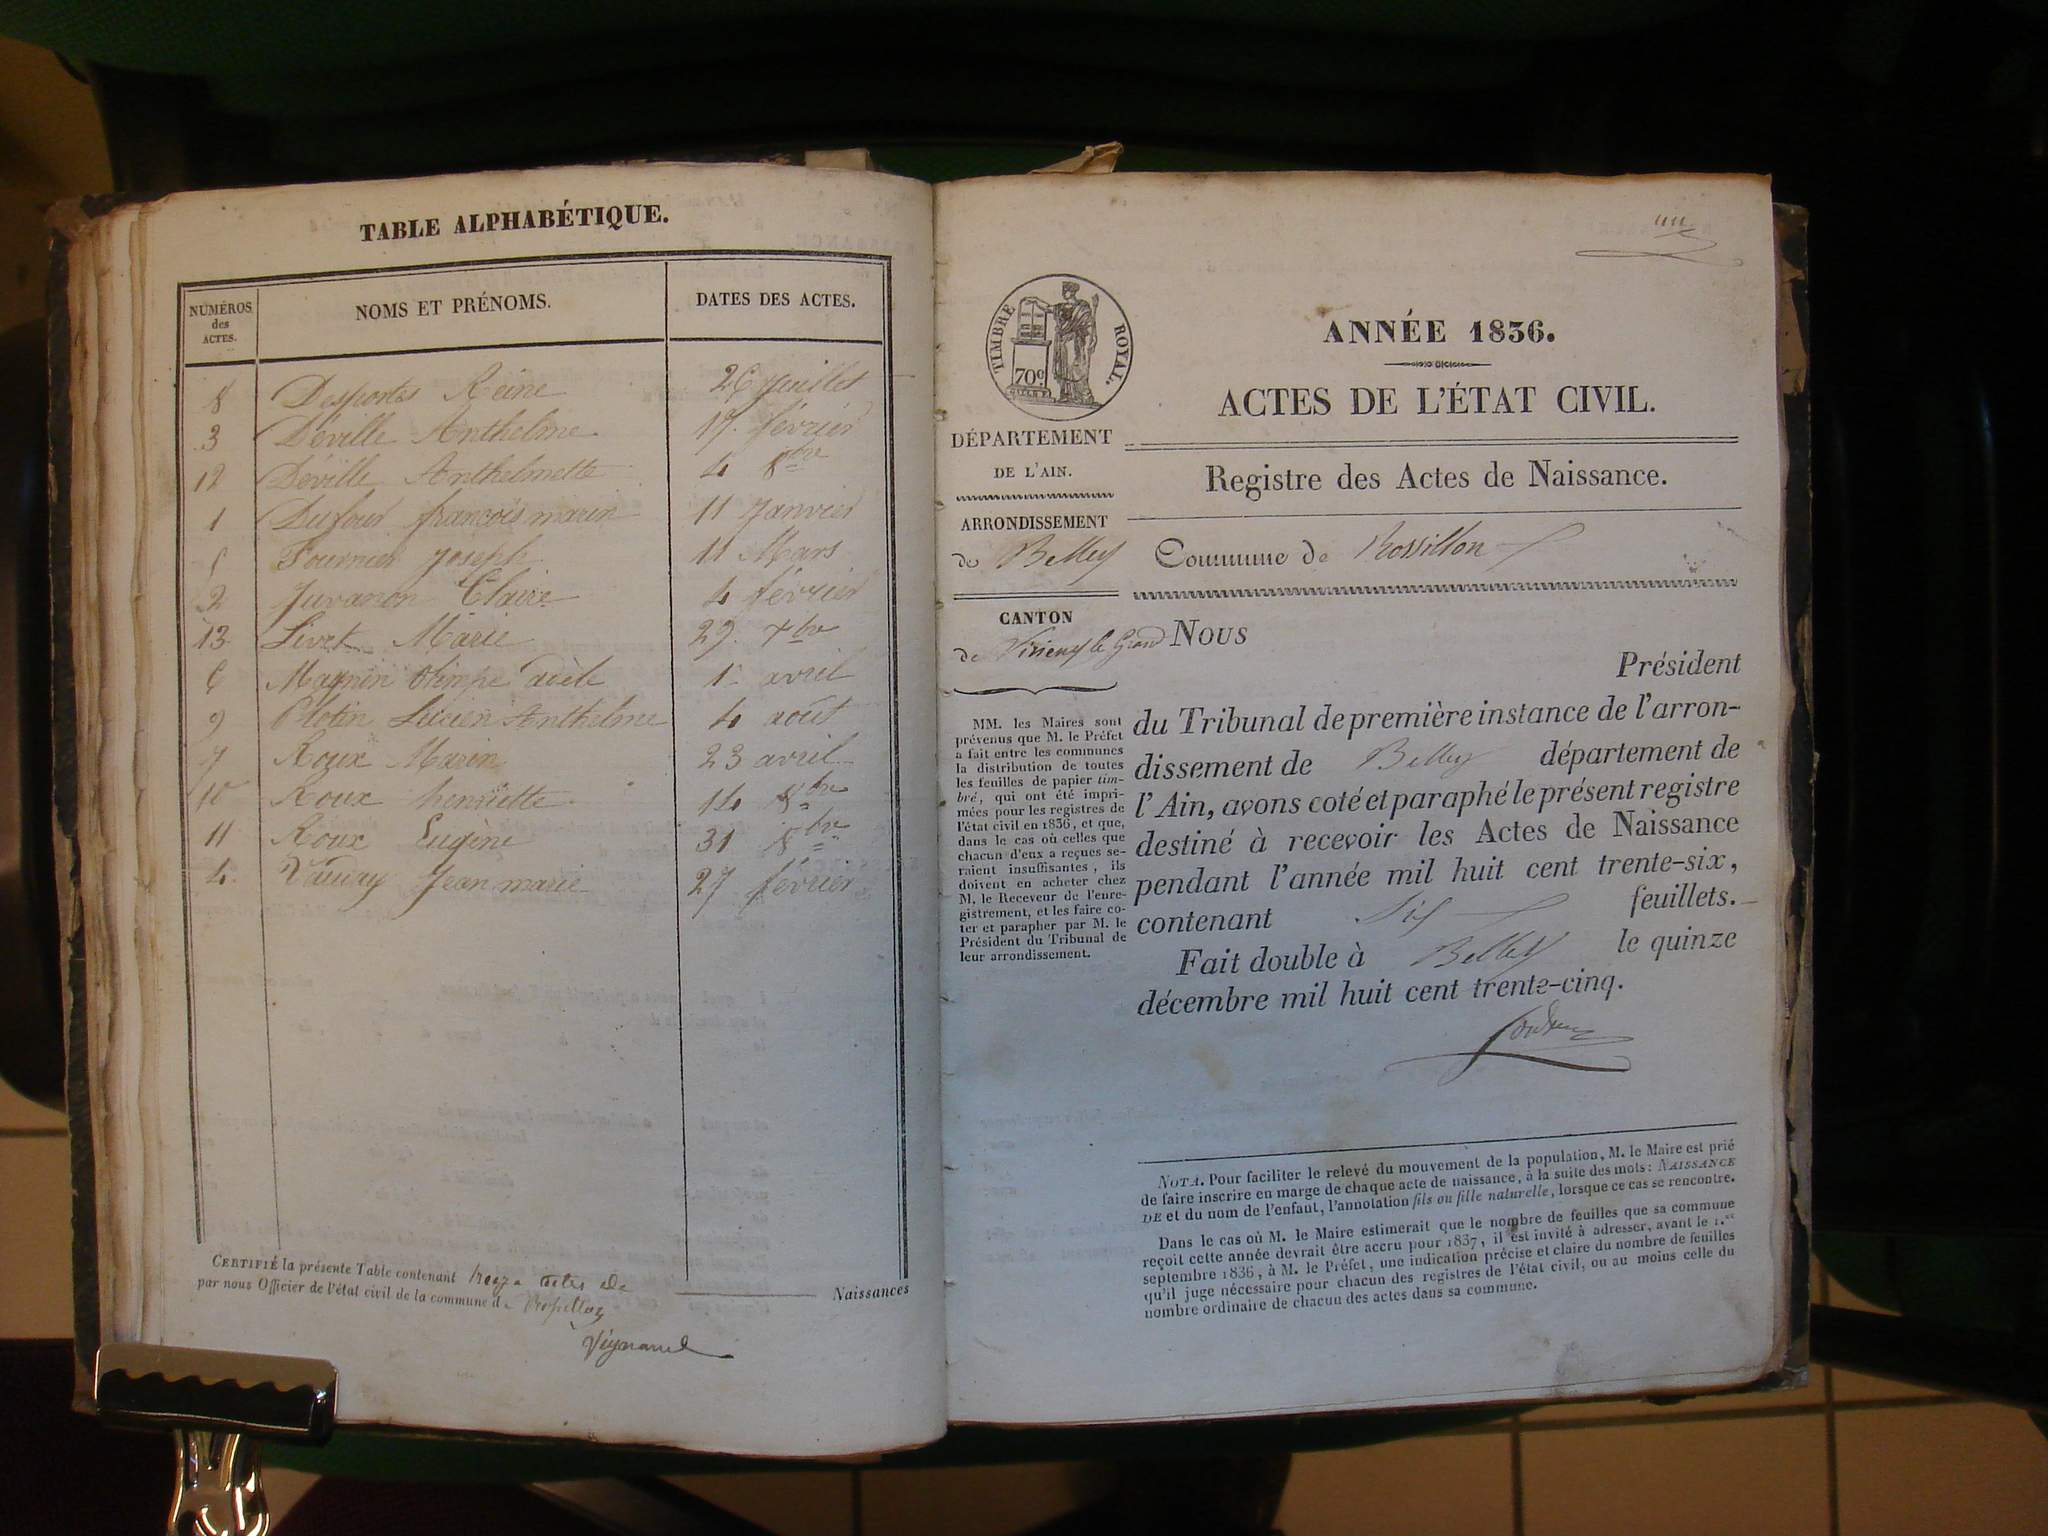 TABLE ALPHABÉTIQUE.
NUMÉROS des ACTES. NOMS ET PRÉNOMS. DATES DES ACTES.
8 Desportes Reine 26 Juillet
3 Déville Anthelme 17. février
12 Déville Anthelmette 4 8bre
1 Dufour françois marin 11 Janvier
5 Fournier Joseph 11 Mars
2 Juvanon Claire 4 février
13 Livet Marie 29. xbre
6 Magnin Olimpe adèle 1er avril
9 Plotin Lucien Anthelme 4 août
7 Roux Marin 23 avril
10 Roux henriette 14 8bre
11 Roux Eugène 31 8bre
4. Jean marie 27 février
CERTIFIÉ la présente Table contenant treize actes de Naissances
par nous Officier de l'état civil de la commune de Rossillon
TIMBRE ROYAL.
70c
DÉPARTEMENT
DE L'AIN.
ARRONDISSEMENT
de Belley
CANTON
de Virieux le Grand
MM. les Maires sont
prévenus que M. le Préfet
a fait entre les communes
la distribution de toutes
les feuilles de papier tim-
bré, qui ont été impri-
mées pour les registres de
l'état civil en 1836, et que,
dans le cas où celles que
chacun d'eux a reçues se-
raient insuffisantes, ils
doivent en acheter chez
M. le Receveur de l'enre-
gistrement, et les faire co-
ter et parapher par M. le
Président du Tribunal de
leur arrondissement.
ANNÉE 1836.
ACTES DE L'ÉTAT CIVIL.
Registre des Actes de Naissance.
Commune de Rossillon
NOUS
Président
du Tribunal de première instance de l'arron-
dissement de Belley département de
l'Ain, avons coté et paraphé le présent registre
destiné à recevoir les Actes de Naissance
pendant l'année mil huit cent trente-six,
contenant six feuillets.
Fait double à Belley le quinze
décembre mil huit cent trente-cinq.
NOTA. Pour faciliter le relevé du mouvement de la population, M. le Maire est prié
de faire inscrire en marge de chaque acte de naissance, à la suite des mots: NAISSANCE
DE et du nom de l'enfant, l'annotation fils ou fille naturelle, lorsque ce cas se rencontre.
Dans le cas où M. le Maire estimerait que le nombre de feuilles que sa commune
reçoit cette année devrait être accru pour 1837, il est invité à adresser, avant le 1.er
septembre 1836, à M. le Préfet, une indication précise et claire du nombre de feuilles
qu'il juge nécessaire pour chacun des registres de l'état civil, ou au moins celle du
nombre ordinaire de chacun des actes dans sa commune.